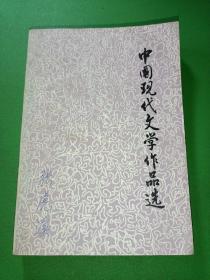 中国现代文学作品选